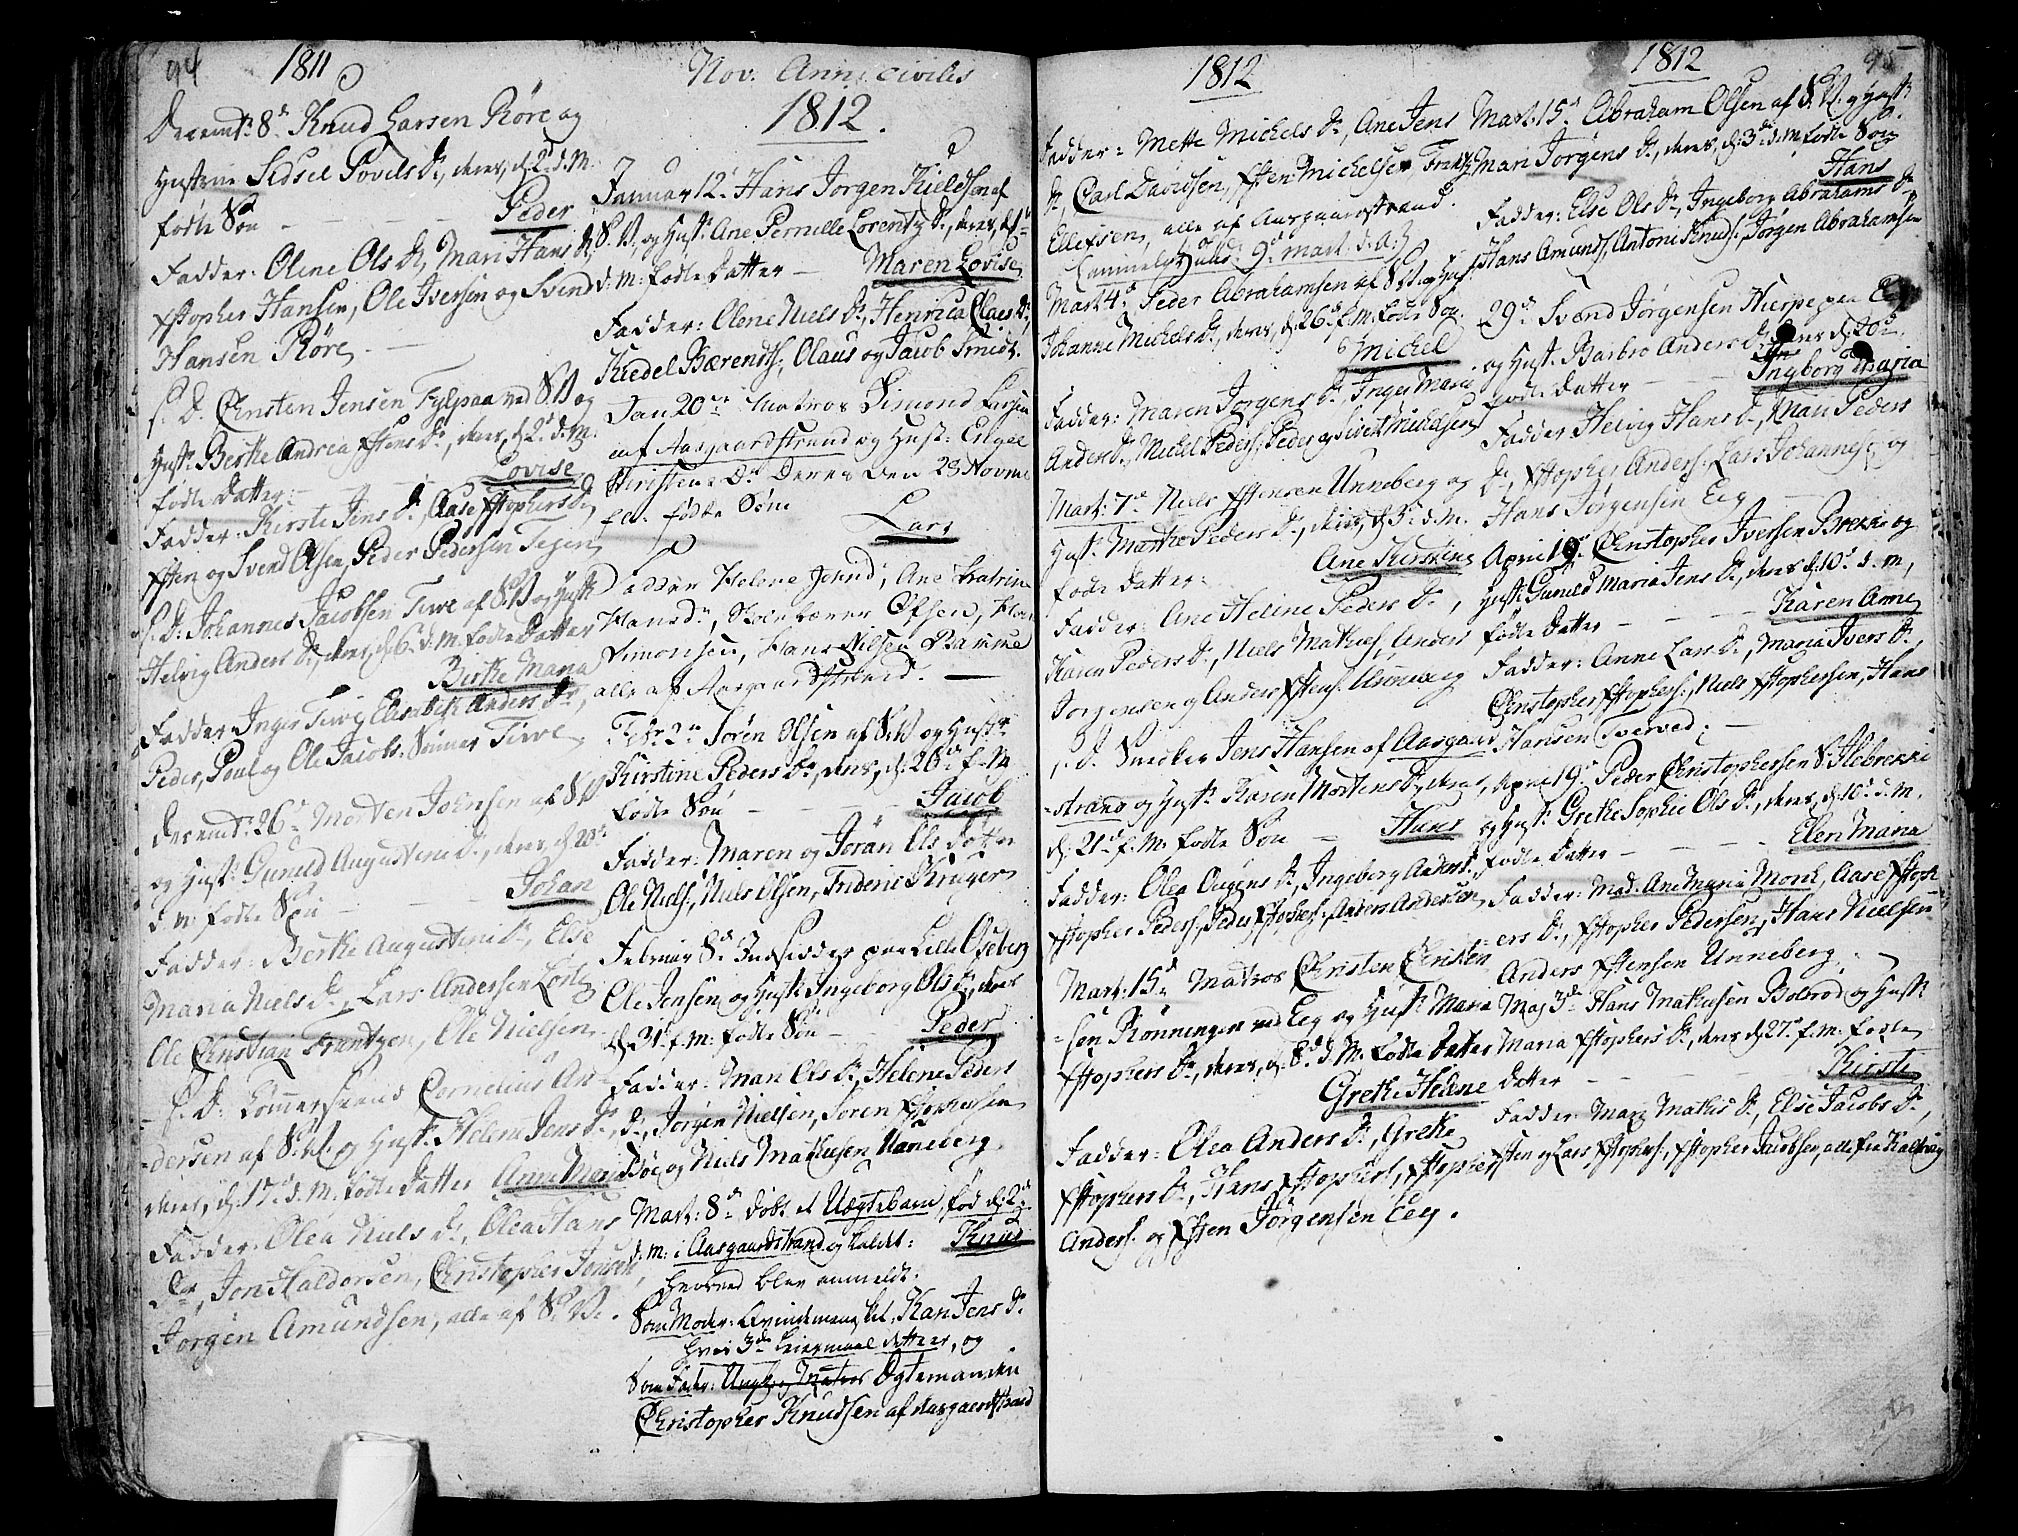 94
1811
Decemb: 8d Knud Larsen Røre og
Hustrue Sidsel Povels Dr, deres, d: 2d d. M.
fødte Søn - - - Peder
Fadder: Olene Ols Dr, Mari Hans Dr,
Xstopher Hansen, Ole Iversen og Svend
Hansen Røre. -
S. D. Christen Jensen Fylpaa ved S. V. og
Hustr Berthe Andrea Xstens Dr, deres, d: 2d d. M.
fødte Datter: - - Lovise
Fadder: Kirste Jens Dr, Aase Xstophers Dr,
Xsten og Svend Olsen, Peder Pedersen Teien
S. D: Johannes Jacobsen Tirve af S. V. og Hustr
Helvig Anders Dr, deres, d: 6d d. M. fødte Datter
Berthe Maria
Fadder Inger Tirve, Elisabeth Anders Dr,
Peder, Poul og Ole Jacobs: Tirve
Decemb: 26d Morten Johnsen af S. V.
og Hustr: Gunild Augustini Dr, deres, d: 20d
d. M: fødte Søn - - - Johan
Fadder: Berthe Augustini Dr, Else
Maria Niels Dr, Lars Andersen
Ole Christian Frantzen, Ole Nielsen
S. D: Cornelius An-
-dersen af S. V. og Hustr: Helene Jens Dr,
deres, d: 17d d. M. fødte Datter Anne Mari
Fadder: Olea Niels Dr, Olea Hans
Dr, Jon Haldorsen, Christopher Jensen,
Jørgen Amundsen, alle af S. V.
Nov. Anni civilis
1812.
Januar 12d Hans Jørgen Kieldsen af
S. V. og Hustr: Ane Pernille Lorentz Dr, deres, d:
d: m: fødte Datter - Maren Lovise
Fadder: Olene Niels Dr, Henrica Claes Dr,
Kiedel Bærendts:, Olaus og Jacob Smidt.
Jan 20de Matros Simond Larsen
af Aasgaardstrand og Hustr: Engel
Christens Dr Deres den 23 Novemb
f. a. fødte Søn
Lars
Fadder Helene Johnd:, Ane Catrine
Hansdr, Skolelærer Ofsen,
Simonsen, Hans Nilsen Ramme
alle af Aasgaardstrand. -
Febr. 2d Søren Olsen af S. V. og Hustr
Kirstine Peders Dr, deres, d: 26d f. M
fødte Søn - - - Jacob
Fadder: Maren og Jøran Ols Datter
Ole Niels:, Niels Olsen, Frideric Krüger
Februar 8d Indsidder paa Lille Oseberg
Ole Jensen, og Hustr Ingeborg Ols Dr, deres
d: 31d f. m: fødte Søn - - Peder
Fadder: Mari Ols Dr, Helene Peders
Dr, Jørgen Nielsen, Søren Xstophersen
Bøe, og Niels Mathisen Unneberg.
Mart: 8d døbt et Uægtebarn, fød d: 2d
d: m: i Aasgaardstrand og kaldet: Knud
hvorved blev anmeldt:
Som Moder: Qvindemenisket, Kari Jens Dr
hvis 3de Leiermaal dette er, og
Som Fader: Ungk. og Matros Ægtemanden
Christopher Knudsen af Aasgaardstrand
1812
Fadder: Mette Michels Dr, Ane Jens
Dr, Carl Davidsen, Xsten Michelsen
Ellefsen, alle af Aasgaardstrand.
Mart 4d Peder Abrahamsen af S. V. og Hustr
Johanne Michels Dr, deres, d: 26d f. m. fødte Søn.
Michel
Fadder: Maren Jørgens Dr Inger Maria
Anders Dr, Michel Peders:, Peder og Sivert Michelsen
Mart: 7d Niels Xstensen Unneberg og
Hustr: Marthe Peders Dr, deres, d: 5d d. M.
fødte Datter: Ane Kirstine
Fadder: Ane Heline Peders Dr,
Karen Peders Dr, Niels Mathis:, Anders
Jørgensen og Anders Xstens: Unneberg
S. D. Snecker Jens Hansen af Aasgaard
-strand og Hustr Karen Mortens Dr, deres,
d: 21d f. M. fødte Søn - Hans
Fadder: Olea Ougens Dr, Ingeborg Anders Dr,
Xstopher Peders:, Peder Xstophers:, Anders Andersen
Mart: 15d Matros Christen Christen
-sen Rønningen ved Eeg og Hustr Maria
Xstophers Dr, deres, d: 8d d. M. fødte Datter
Grethe Helene
Fadder: Olea Anders Dr, Grethe
Xstophers Dr, Hans Xstophers:, Xstopher
Anders: og Xsten Jørgensen Eeg.
1812
95
Mart: 15d Abraham Olsen af S. V. og Hustr
Mari Jørgens Dr, deres, d: 3d d. m. fødte Søn
Hans
Fadder: Else Ols Dr, Ingeborg Abrahams Dr,
Hans Amunds:, Antoni Knuds:, Jørgen Abrahamsen
29d Svend Jørgensen Hierpe paa Eeg
og Hustr: Barbro Anders Dr, deres d: 20d
fødte Datter - - Ingborg Maria
Fadder Helvig Hans Dr, Mari Peders
Dr, Xstopher Anders:, Lars Johannes: og
Hans Jørgensen Eeg -
April 19d Christopher Iversen Brekke og
Hustr Gunild Maria Jens Dr, deres d: 10d d. m,
fødte Datter - - - Karen Anne
Fadder: Anne Lars Dr, Maria Ivers Dr,
Christopher Xstophers:, Niels Xstophersen, Hans
Hansen Tverved; -
April 19d Peder Christophersen S: Ilebrekke
og Hustr Grethe Sophie Ols Dr, deres, d: 10d d. M.
fødte Datter - - - Elen Maria
Fadder: Mad: Ane Maria Monk, Aase Xstoph
-ers Dr, Xstopher Pedersen, Hans Nielsen
Anders Xstensen Unneberg.
Maj 3de Hans Mathisen Bolerød og Hustr
Maria Xstophers Dr, deres d: 27d f. m: fødte
Datter - - - Kirste
Fadder: Mari Mathis Dr, Else Jacobs Dr,
Xsten og Lars Xstophers:, Xstopher Jacobsen, alle fra